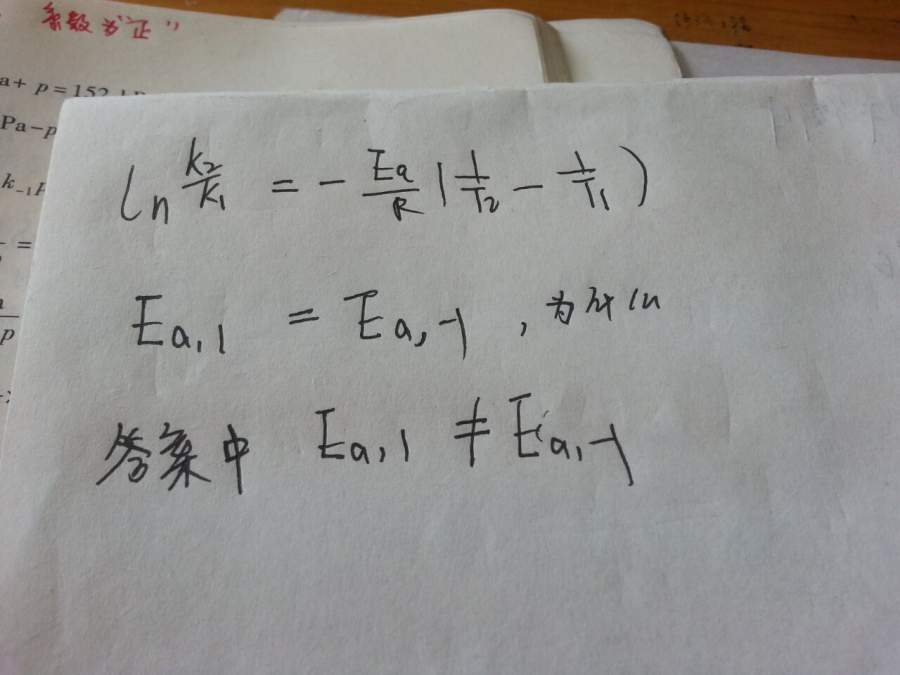 系数为"正"
a + p = 152
Pa - p
k₋₁p
=
p
ln k₂/k₁ = - Ea/R (1/T₂ - 1/T₁)
Ea,1 = Ea,-1 , 为
答案中 Ea,1 ≠ Ea,-1